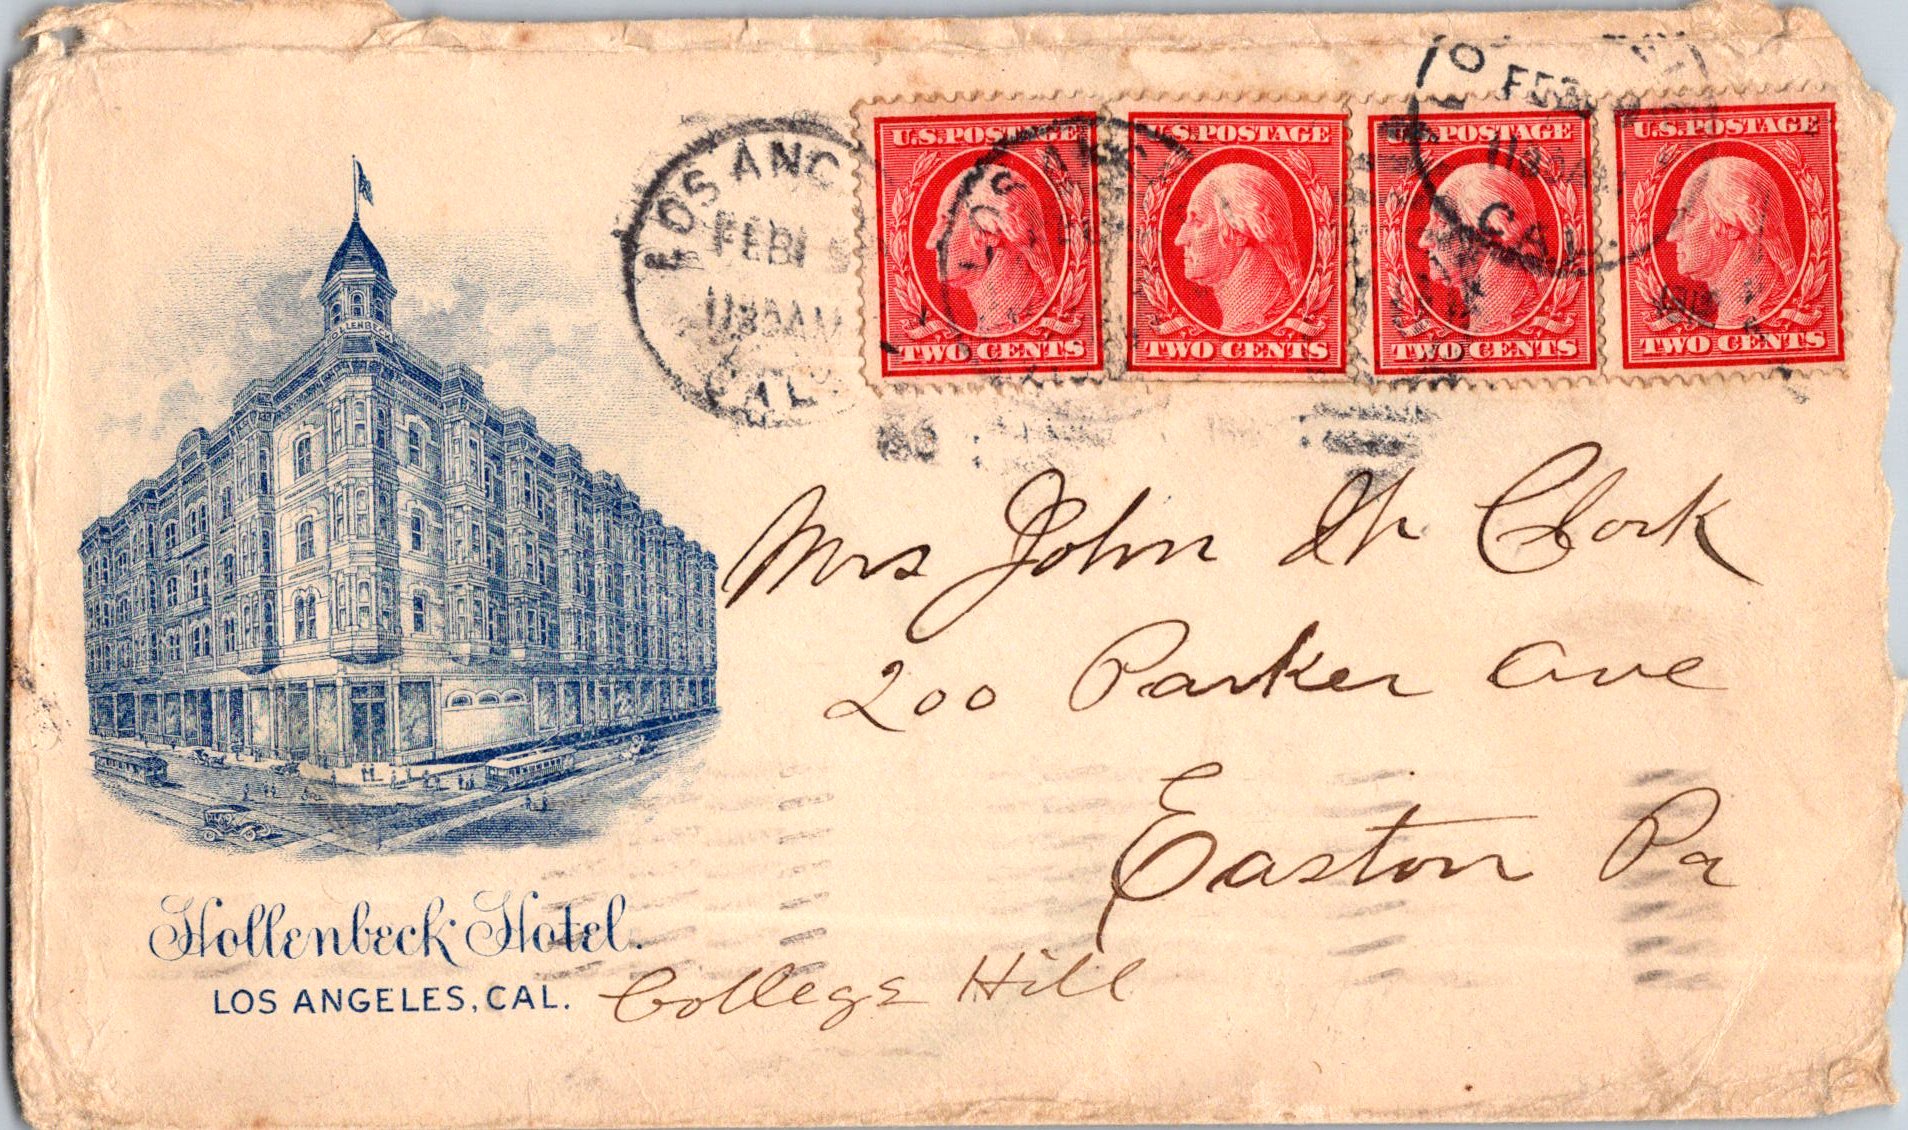 LOS ANG
FEB
1130AM
CAL
U.S.POSTAGE
TWO CENTS
U.S.POSTAGE
TWO CENTS
U.S.POSTAGE
TWO CENTS
U.S.POSTAGE
TWO CENTS
LOS AN
FEB
1130A
CAL.
HOLLENBECK
Mrs John W Clark
200 Parker Ave
Easton Pa
College Hill
Hollenbeck Hotel.
LOS ANGELES, CAL.